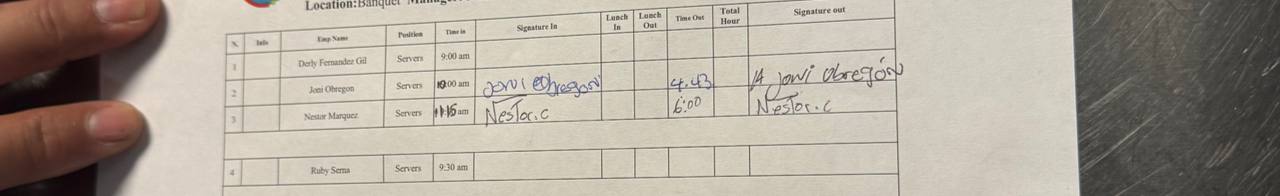 Location:Banquet
N. Info Emp Name Position Time in Signature In Lunch In Lunch Out Time Out Total Hour Signature out
1 Derly Fernandez Gil Servers 9:00 am
2 Joni Obregon Servers 10:00 am Joni Obregon 4:43 Joni Obregón
3 Nestor Marquez Servers 11:15 am Nestor.c 6:00 Nestor.c
4 Ruby Serna Servers 9:30 am